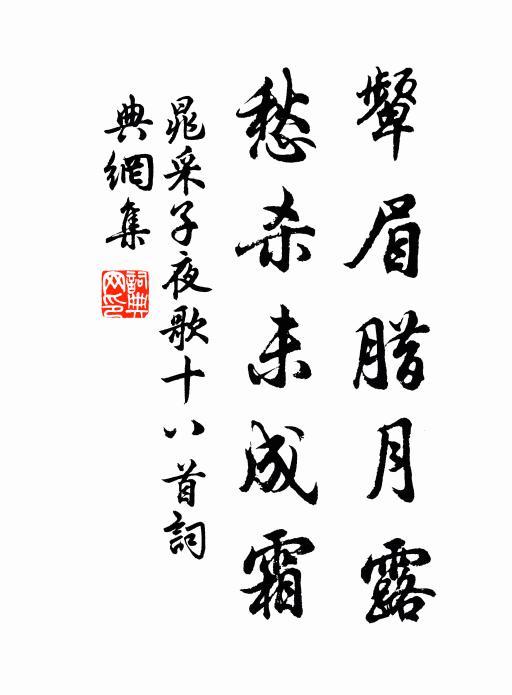 顰眉腊月露
愁杀未成霜
晁采子夜歌十八首詞
典網集
詞典
网印